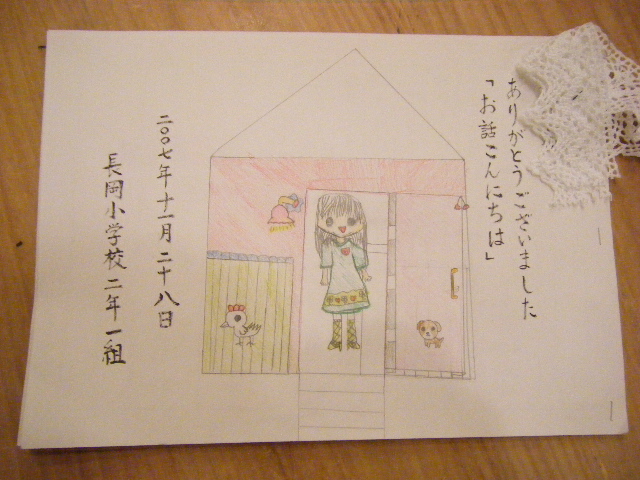 ありがとうございました
「お話こんにちは」
二〇〇七年十一月二十八日
長岡小学校二年一組